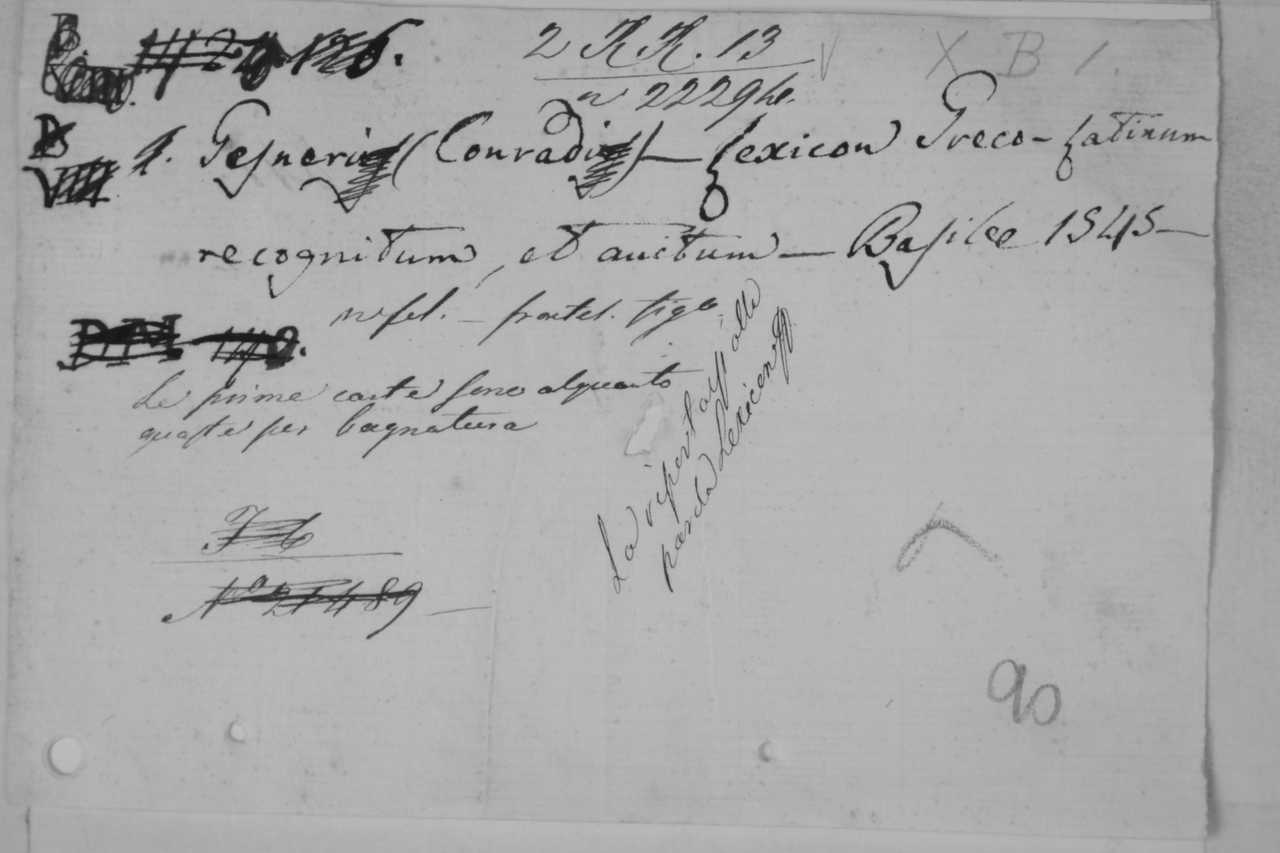 2 KK. 13
X B 1
n 22294
Gesneri (Conradi) — Lexicon Greco-Latinum
recognitum, et auctum — Basilee 1545 —
in fol. — frontes. fig.
Le prime carte sono alquanto
guaste per bagnatura
La riport alla
parola Lexicon
N° 21489
90